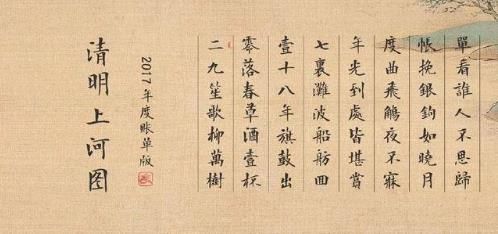 單看誰人不思歸
帳挽銀鉤如曉月
度曲飛觴夜不寐
年光到處皆堪賞
七裏灘波船舫回
壹十八年旗鼓出
零落春草酒壹杯
二九笙歌柳萬樹
2017 年度賬單版
清明上河图